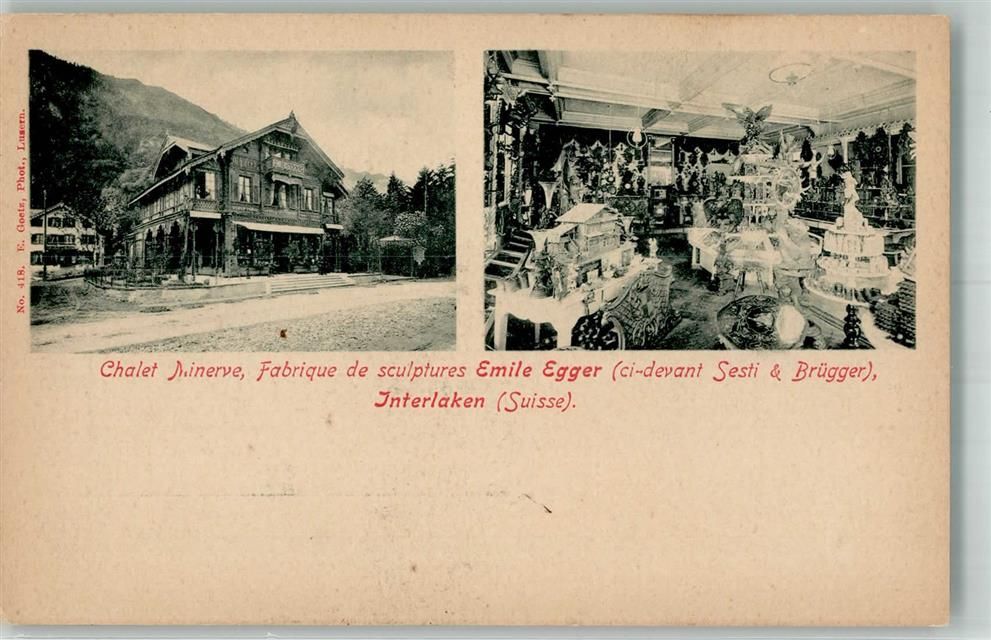 No. 418. E. Goetz, Phot., Luzern.
Chalet Minerve, Fabrique de sculptures Emile Egger (ci-devant Sesti & Brügger),
Interlaken (Suisse).